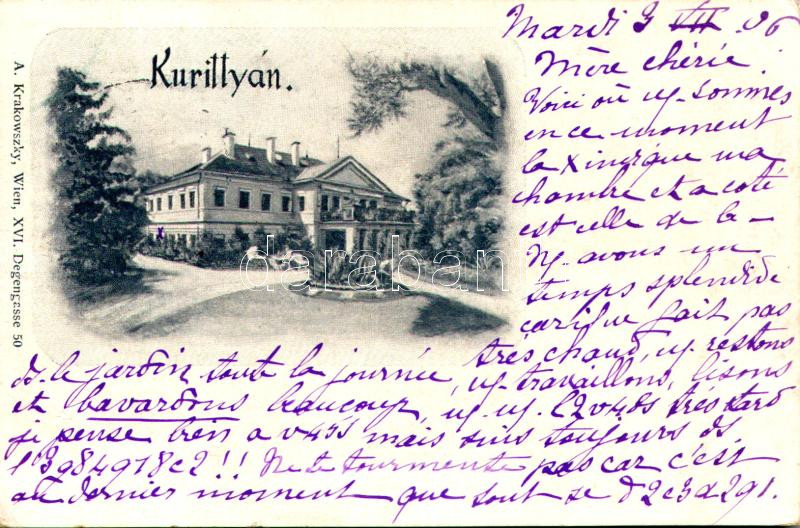 Kurittyán.
A. Krakowszky, Wien, XVI. Degengasse 50
darabanth
Mardi 3 VII 06
Mère chérie.
Voici où n.-sommes
en ce moment
la X indique ma
chambre et a coté
est celle de la –
N. avons un
temps splendide
car il ne fait pas
très chaud, n. restons
ds. le jardin toute la journée, n.-travaillons, lisons
et bavardons beaucoup, n. n. l2v4ds très tard
je pense bien a v4s mais suis toujours ds
l'3984918c2!! Ne te tourmente pas car c'est
au dernier moment que tout se d2c3d291.